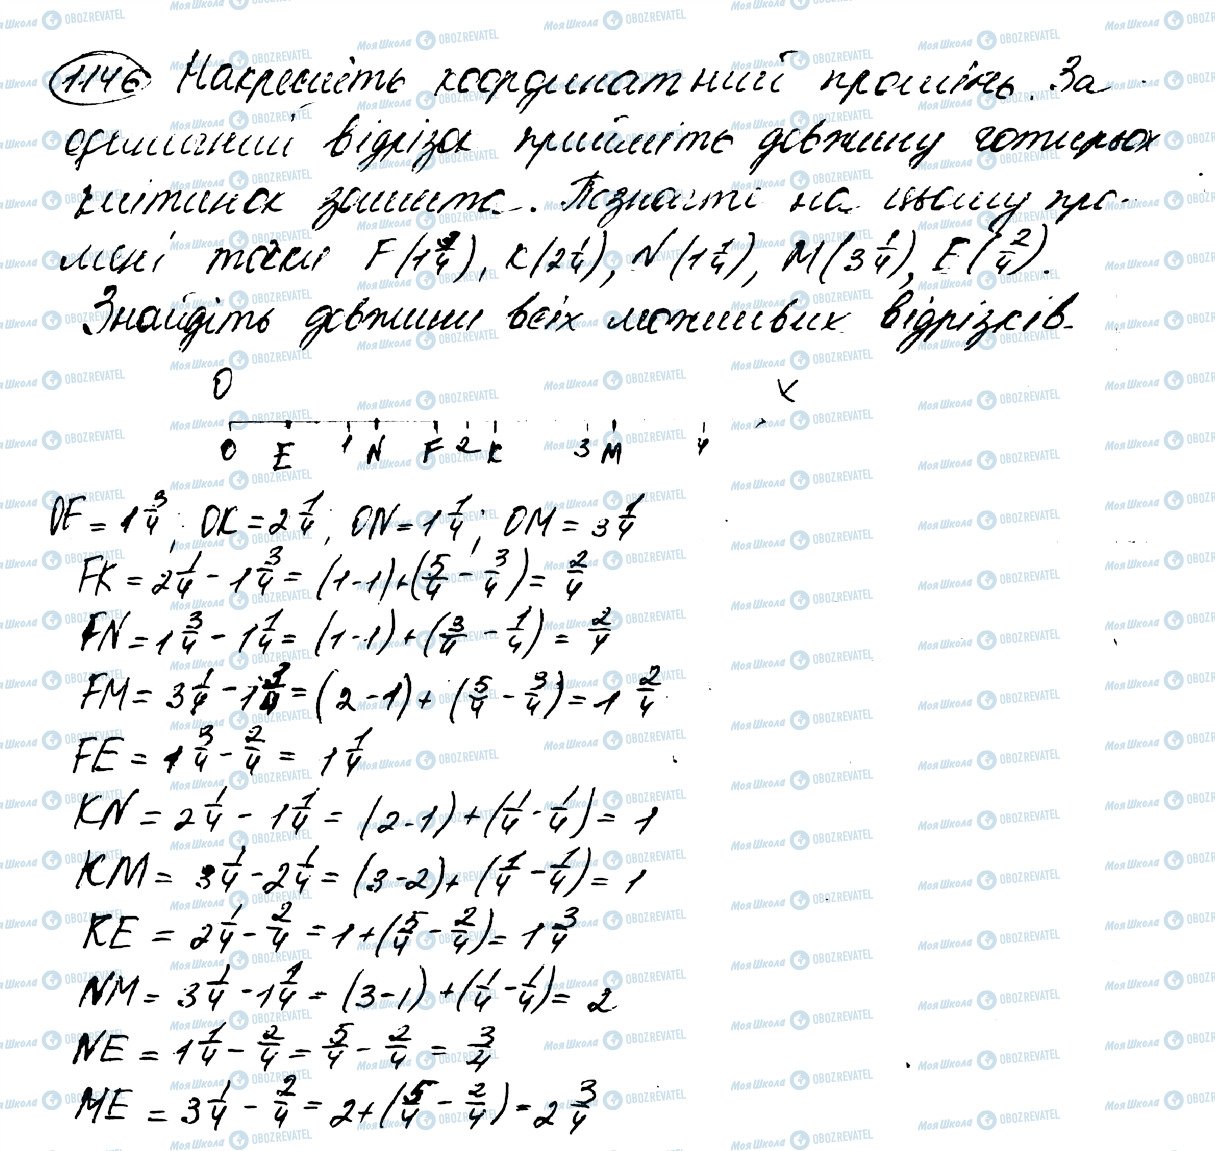 1146 Накресліть координатний промінь. За
одиничний відрізок прийміть довжину чотирьох
клітинок зошита. Позначті на цьому про-
мені точки F(1 3/4), K(2 1/4), N(1 1/4), M(3 1/4), E(2/4).
Знайдіть довжини всіх можливих відрізків.
O X
0 E 1 N F 2 K 3 M 4
OF = 1 3/4; OK = 2 1/4; ON = 1 1/4; OM = 3 1/4
FK = 2 1/4 - 1 3/4 = (1-1)+(5/4 - 3/4) = 2/4
FN = 1 3/4 - 1 1/4 = (1-1)+(3/4 - 1/4) = 2/4
FM = 3 1/4 - 1 3/4 = (2-1)+(5/4 - 3/4) = 1 2/4
FE = 1 3/4 - 2/4 = 1 1/4
KN = 2 1/4 - 1 1/4 = (2-1)+(1/4 - 1/4) = 1
KM = 3 1/4 - 2 1/4 = (3-2)+(1/4 - 1/4) = 1
KE = 2 1/4 - 2/4 = 1+(5/4 - 2/4) = 1 3/4
NM = 3 1/4 - 1 1/4 = (3-1)+(1/4 - 1/4) = 2
NE = 1 1/4 - 2/4 = 5/4 - 2/4 = 3/4
ME = 3 1/4 - 2/4 = 2+(5/4 - 2/4) = 2 3/4
Моя Школа OBOZREVATEL